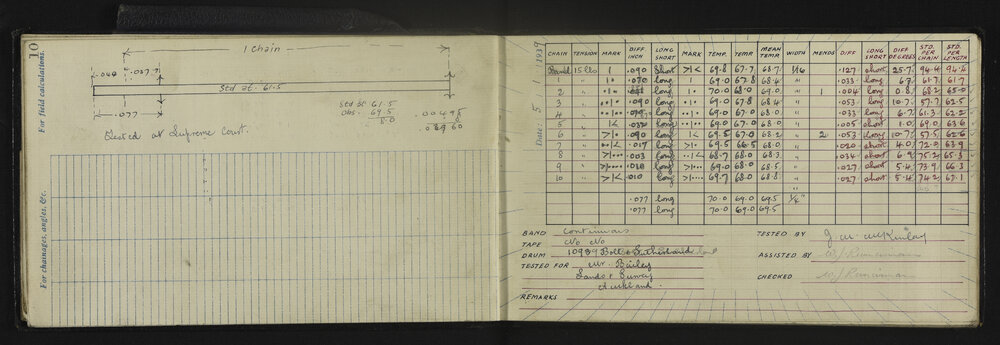 10
For field calculations.
1 Chain
.040 .037
Std at. 61.5
.077
Std at 61.5
Obs. 69.5
8.0
.00495
Tested at Supreme Court.
For chainages, angles, &c.
Date: 5/1/1939
CHAIN TENSION MARK DIFF INCH LONG SHORT MARK TEMP. TEMP. MEAN TEMP. WIDTH MENDS DIFF LONG SHORT DIFF DEGREES STD. PER CHAIN STD. PER LENGTH
15 lbs .090 Short >|< 69.8 67.7 68.7 1/16 .127 short 25.7 94.4 94.4
1 " |• .070 long | 69.0 67.8 68.4 " .033 long 6.7 61.7 61.7
2 " •|• long |• 70.0 68.0 69.0 " 1 .004 long 0.8 68.2 65.0
3 " ••|• .090 long |• 69.0 67.8 68.4 " .053 long 10.7 57.7 62.5
4 " long |•• 69.0 67.0 68.0 " .033 long 6.7 61.3 62.2
5 " |< long |•• 69.0 67.0 68.0 " .005 short 1.0 69.0 63.6
6 " >|• .090 long |< 69.5 67.0 68.2 " 2 .053 long 10.7 57.5 62.6
7 " ••|< .017 long >|• 69.5 66.5 68.0 " .020 short 4.0 72.0 63.9
8 " >|••• .003 long ••|< 68.7 68.0 68.3 " .034 short 6.9 75.2 65.3
9 " >|•••• .010 long >|••• 69.0 68.0 68.5 " .027 short 5.4 73.9 66.3
10 " >|< .010 long >|•••• 69.7 68.0 68.8 " .027 short 5.4 74.2 67.1
.077 long 70.0 69.0 69.5 1/4"
.077 long 70.0 69.0 69.5
BAND Continuous
TAPE No No
DRUM 10989 Bolt & Sutherland
TESTED FOR Mr. Bailey
Lands & Survey
Auckland.
REMARKS
TESTED BY J. M. McKinlay
ASSISTED BY W. J. Runciman
CHECKED W. J. Runciman